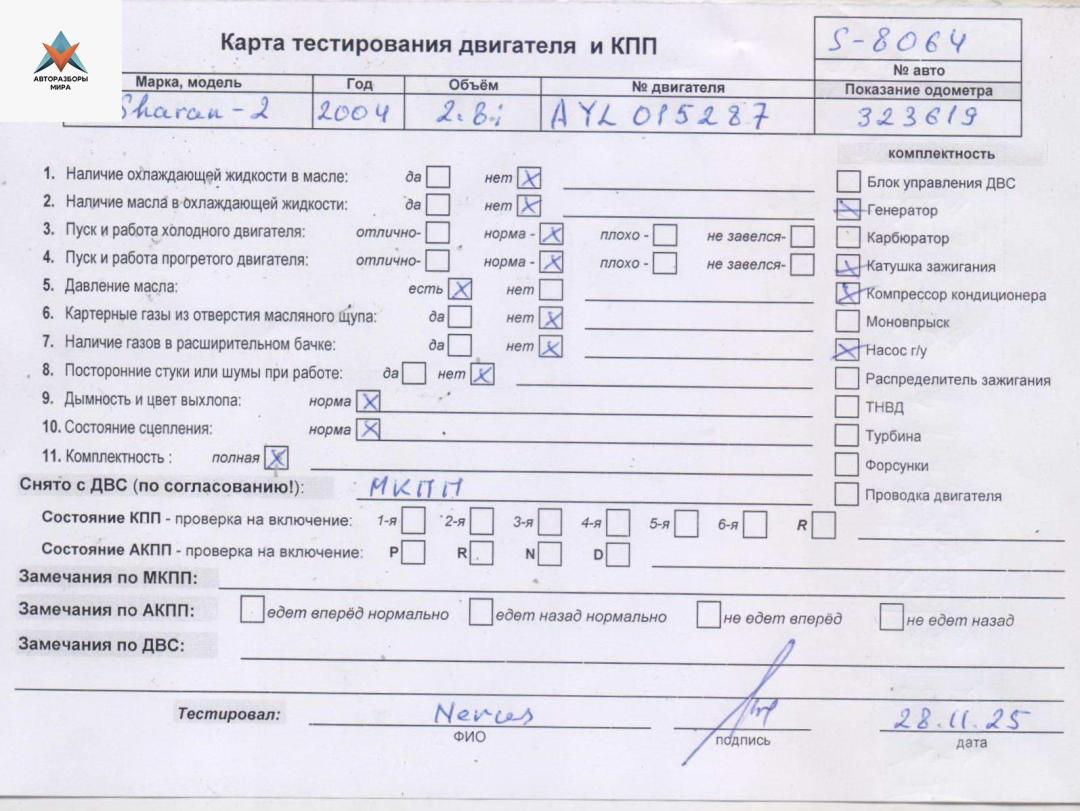 АВТОРАЗБОРЫ
МИРА
Карта тестирования двигателя и КПП
S-8064
№ авто
Марка, модель Год Объём № двигателя Показание одометра
Sharan-2 2004 2.8i AYL 015287 323619
комплектность
1. Наличие охлаждающей жидкости в масле: да нет X
Блок управления ДВС
2. Наличие масла в охлаждающей жидкости: да нет X
X Генератор
3. Пуск и работа холодного двигателя: отлично- норма - X плохо - не завелся-
Карбюратор
4. Пуск и работа прогретого двигателя: отлично- норма - X плохо - не завелся-
X Катушка зажигания
5. Давление масла: есть X нет
X Компрессор кондиционера
6. Картерные газы из отверстия масляного щупа: да нет X
Моновпрыск
7. Наличие газов в расширительном бачке: да нет X
X Насос г/у
8. Посторонние стуки или шумы при работе: да нет X
Распределитель зажигания
9. Дымность и цвет выхлопа: норма X
ТНВД
10. Состояние сцепления: норма X
Турбина
11. Комплектность : полная X
Форсунки
Снято с ДВС (по согласованию!): МКПП
Проводка двигателя
Состояние КПП - проверка на включение: 1-я 2-я 3-я 4-я 5-я 6-я R
Состояние АКПП - проверка на включение: P R N D
Замечания по МКПП:
Замечания по АКПП: едет вперёд нормально едет назад нормально не едет вперёд не едет назад
Замечания по ДВС:
Тестировал: 28.11.25
ФИО подпись дата